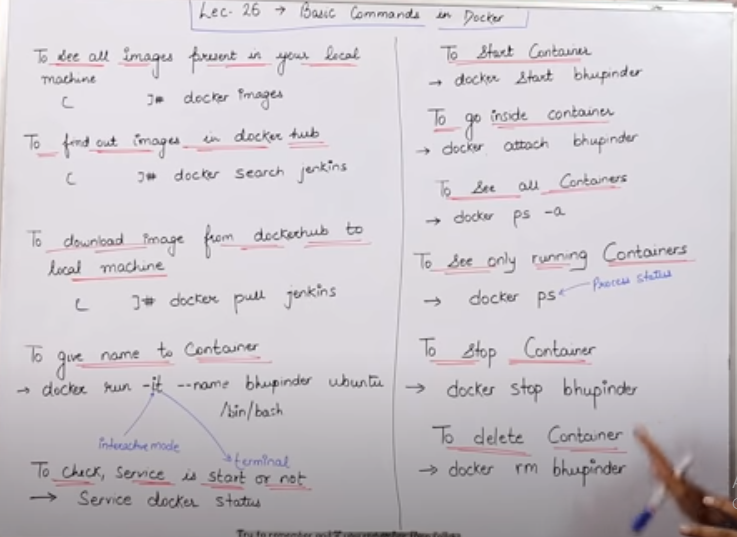 Lec- 26 → Basic Commands in Docker
To see all images present in your local
machine
[ ]# docker images
To find out images in docker hub
[ ]# docker search jenkins
To download image from dockerhub to
local machine
[ ]# docker pull jenkins
To give name to Container
→ docker run -it --name bhupinder ubuntu
/bin/bash
interactive mode
terminal
To check, service is start or not
→ Service docker status
To Start Container
→ docker start bhupinder
To go inside container
→ docker attach bhupinder
To see all Containers
→ docker ps -a
To see only running Containers
→ docker ps
Process status
To Stop Container
→ docker stop bhupinder
To delete Container
→ docker rm bhupinder